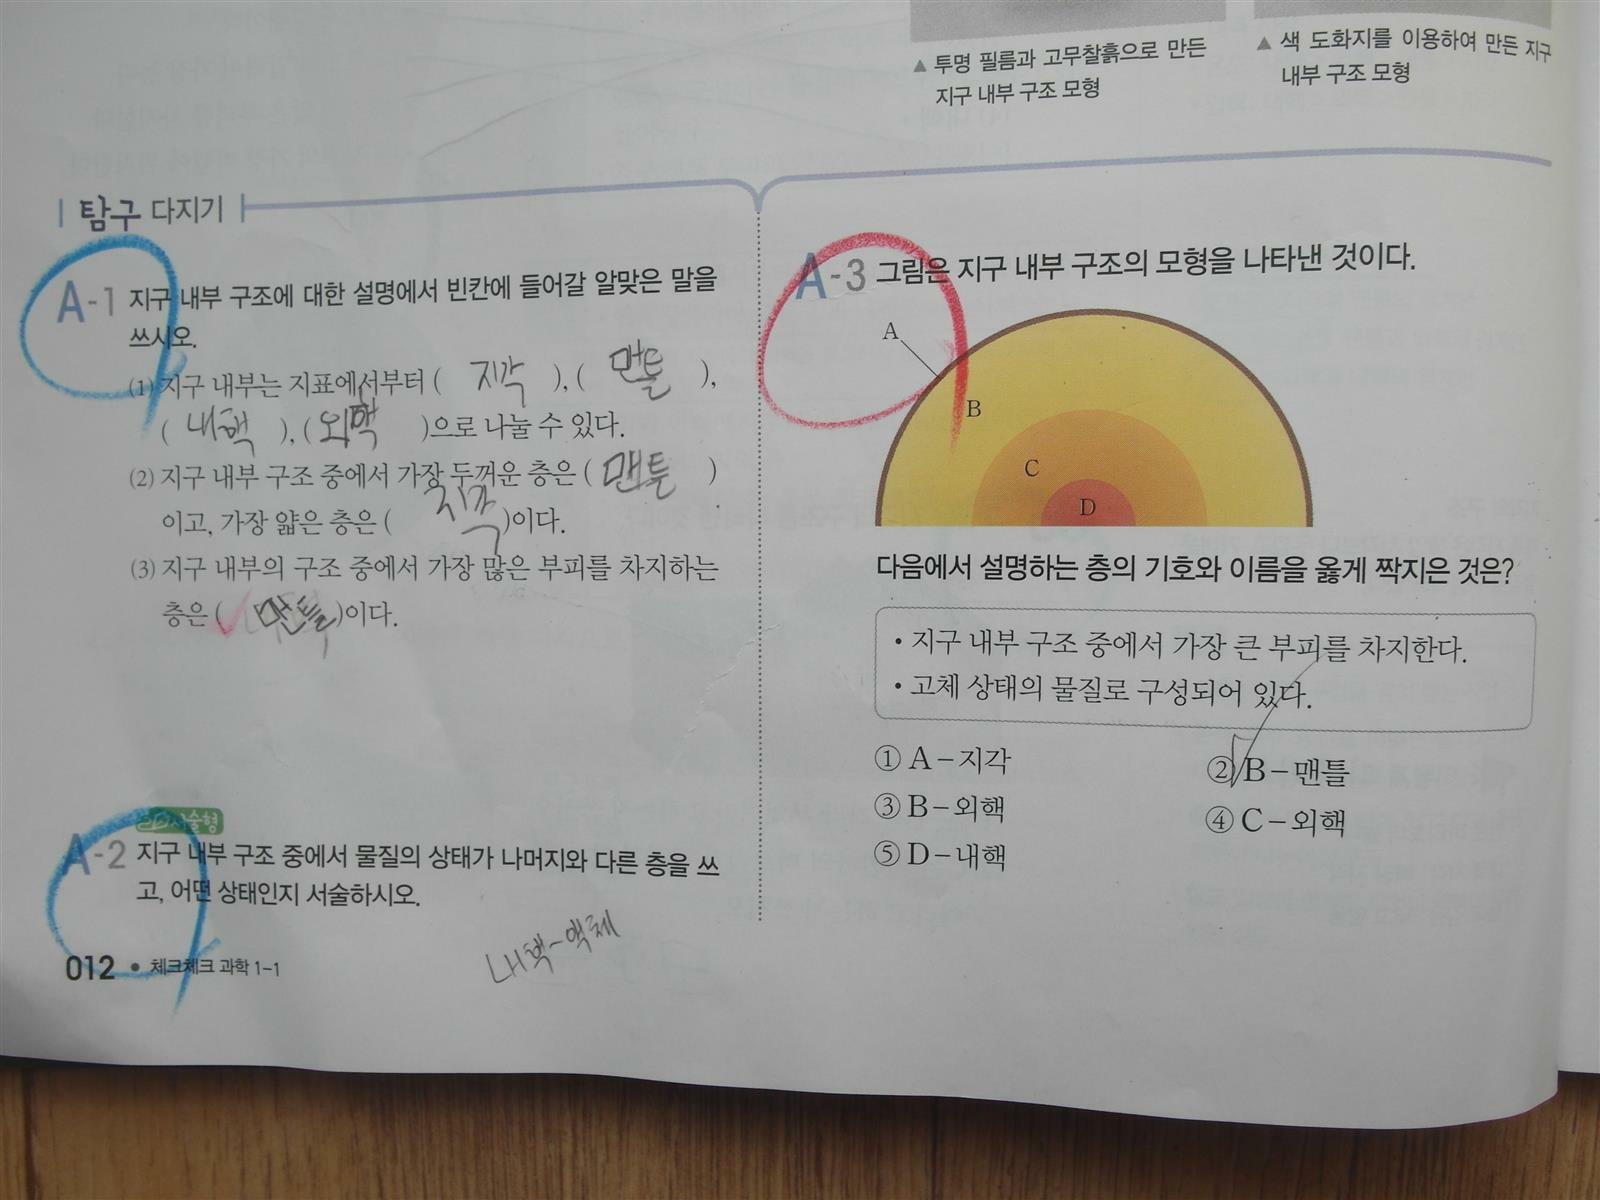 ▲ 투명 필름과 고무찰흙으로 만든
지구 내부 구조 모형
▲ 색 도화지를 이용하여 만든 지구
내부 구조 모형
탐구 다지기
A-1 지구 내부 구조에 대한 설명에서 빈칸에 들어갈 알맞은 말을
쓰시오.
(1) 지구 내부는 지표에서부터 ( 지각 ), ( 맨틀 ),
( 내핵 ), ( 외핵 )으로 나눌 수 있다.
(2) 지구 내부 구조 중에서 가장 두꺼운 층은 ( 맨틀 )
이고, 가장 얇은 층은 ( 지각 )이다.
(3) 지구 내부의 구조 중에서 가장 많은 부피를 차지하는
층은 ( 맨틀 )이다.
서술형
A-2 지구 내부 구조 중에서 물질의 상태가 나머지와 다른 층을 쓰
고, 어떤 상태인지 서술하시오.
내핵-액체
012 • 체크체크 과학 1-1
A-3 그림은 지구 내부 구조의 모형을 나타낸 것이다.
A
B
C
D
다음에서 설명하는 층의 기호와 이름을 옳게 짝지은 것은?
• 지구 내부 구조 중에서 가장 큰 부피를 차지한다.
• 고체 상태의 물질로 구성되어 있다.
① A-지각 ② B-맨틀
③ B-외핵 ④ C-외핵
⑤ D-내핵